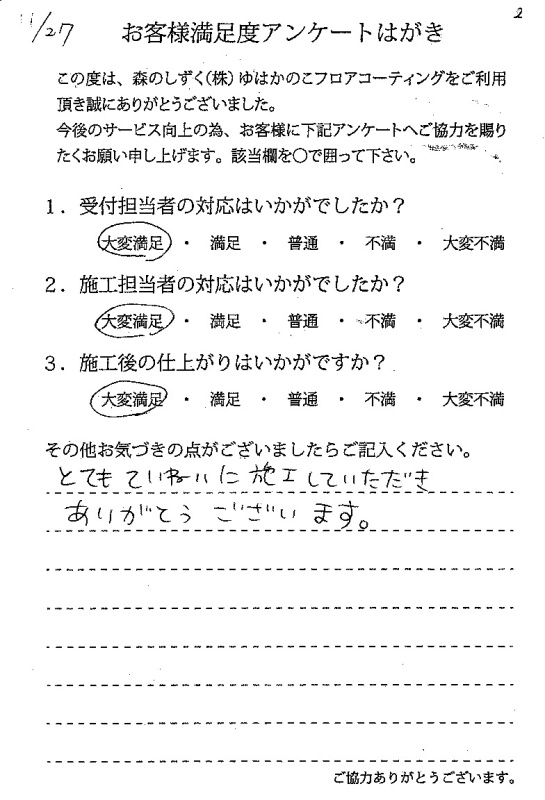 11/27
2
お客様満足度アンケートはがき
この度は、森のしずく(株)ゆはかのこフロアコーティングをご利用
頂き誠にありがとうございました。
今後のサービス向上の為、お客様に下記アンケートへご協力を賜り
たくお願い申し上げます。該当欄を〇で囲って下さい。
1．受付担当者の対応はいかがでしたか？
大変満足 ・ 満足 ・ 普通 ・ 不満 ・ 大変不満
2．施工担当者の対応はいかがでしたか？
大変満足 ・ 満足 ・ 普通 ・ 不満 ・ 大変不満
3．施工後の仕上がりはいかがですか？
大変満足 ・ 満足 ・ 普通 ・ 不満 ・ 大変不満
その他お気づきの点がございましたらご記入ください。
とてもていねいに施工していただき
ありがとうございます。
ご協力ありがとうございます。